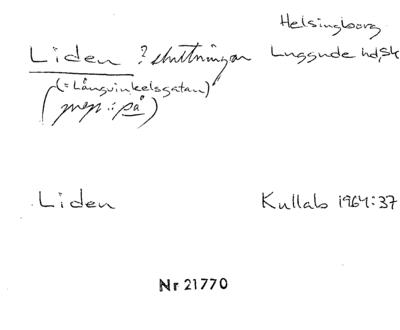 Helsingborg
Liden ? sluttningar Luggude hd, Sk
(=Långvinkelsgatan)
(prep.: på)
Liden Kullab 1964:37
Nr 21770